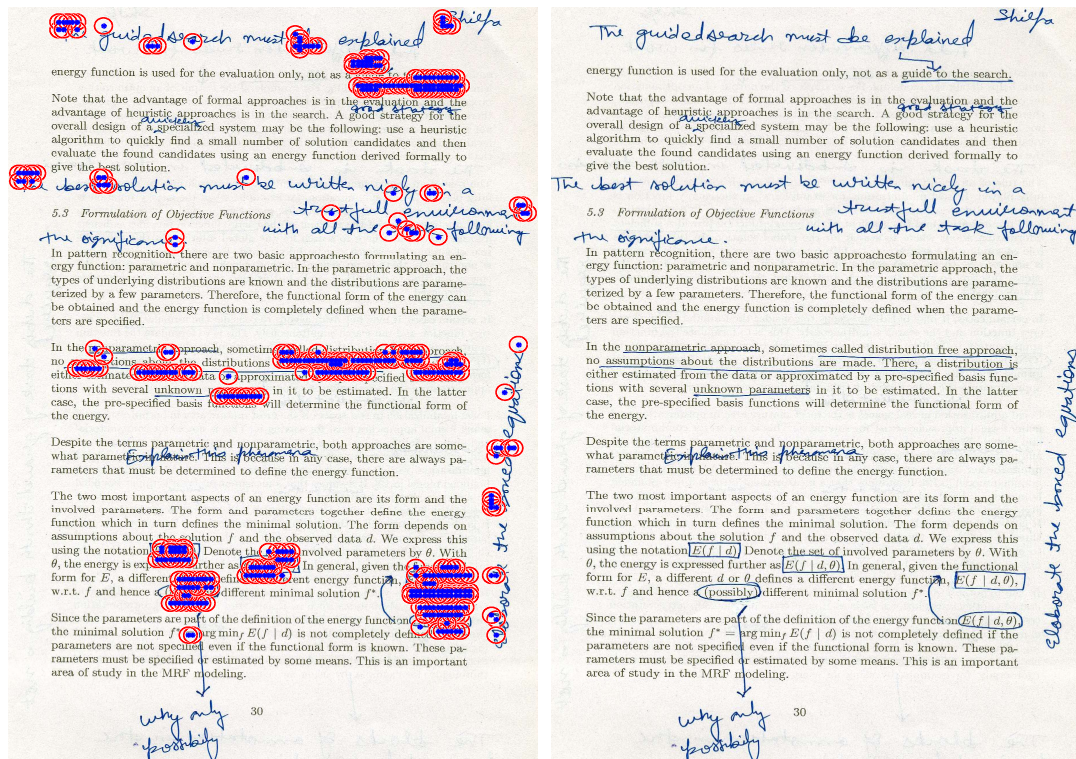 Shilpa
guided search must explained
energy function is used for the evaluation only, not as a
Note that the advantage of formal approaches is in the evaluation and the
good strategy
advantage of heuristic approaches is in the search. A good strategy for the
quickly
overall design of a specialized system may be the following: use a heuristic
algorithm to quickly find a small number of solution candidates and then
evaluate the found candidates using an energy function derived formally to
give the best solution.
The best solution must be written nicely in a
5.3 Formulation of Objective Functions
trustfull environment
with all the task following
the significance.
In pattern recognition, there are two basic approachesto formulating an en-
ergy function: parametric and nonparametric. In the parametric approach, the
types of underlying distributions are known and the distributions are parame-
terized by a few parameters. Therefore, the functional form of the energy can
be obtained and the energy function is completely defined when the parame-
ters are specified.
In the
no
tions with several unknown in it to be estimated. In the latter
case, the pre-specified basis functions will determine the functional form of
the energy.
Despite the terms parametric and nonparametric, both approaches are some-
Explain this phenomena
what parametric in nature. This is because in any case, there are always pa-
rameters that must be determined to define the energy function.
The two most important aspects of an energy function are its form and the
involved parameters. The form and parameters together define the energy
function which in turn defines the minimal solution. The form depends on
assumptions about the solution f and the observed data d. We express this
using the notation Denote involved parameters by θ. With
θ, the energy is further as In general, given the
form for E, a different energy function,
w.r.t. f and hence a different minimal solution f*.
Since the parameters are part of the definition of the energy function
the minimal solution f* arg min_f E(f | d) is not completely
parameters are not specified even if the functional form is known. These pa-
rameters must be specified or estimated by some means. This is an important
area of study in the MRF modeling.
30
why only
possibily
Elaborate the boxed equations
Shilpa
The guided search must be explained
energy function is used for the evaluation only, not as a guide to the search.
Note that the advantage of formal approaches is in the evaluation and the
good strategy
advantage of heuristic approaches is in the search. A good strategy for the
quickly
overall design of a specialized system may be the following: use a heuristic
algorithm to quickly find a small number of solution candidates and then
evaluate the found candidates using an energy function derived formally to
give the best solution.
The best solution must be written nicely in a
5.3 Formulation of Objective Functions
trustfull environment
with all the task following
the significance.
In pattern recognition, there are two basic approachesto formulating an en-
ergy function: parametric and nonparametric. In the parametric approach, the
types of underlying distributions are known and the distributions are parame-
terized by a few parameters. Therefore, the functional form of the energy can
be obtained and the energy function is completely defined when the parame-
ters are specified.
In the nonparametric approach, sometimes called distribution free approach,
no assumptions about the distributions are made. There, a distribution is
either estimated from the data or approximated by a pre-specified basis func-
tions with several unknown parameters in it to be estimated. In the latter
case, the pre-specified basis functions will determine the functional form of
the energy.
Despite the terms parametric and nonparametric, both approaches are some-
Explain this phenomena
what parametric in nature. This is because in any case, there are always pa-
rameters that must be determined to define the energy function.
The two most important aspects of an energy function are its form and the
involved parameters. The form and parameters together define the energy
function which in turn defines the minimal solution. The form depends on
assumptions about the solution f and the observed data d. We express this
using the notation E(f | d) Denote the set of involved parameters by θ. With
θ, the energy is expressed further as E(f | d, θ) In general, given the functional
form for E, a different d or θ defines a different energy function, E(f | d, θ),
w.r.t. f and hence a (possibly) different minimal solution f*.
Since the parameters are part of the definition of the energy function E(f | d, θ)
the minimal solution f* = arg min_f E(f | d) is not completely defined if the
parameters are not specified even if the functional form is known. These pa-
rameters must be specified or estimated by some means. This is an important
area of study in the MRF modeling.
30
why only
possibily
Elaborate the boxed equations